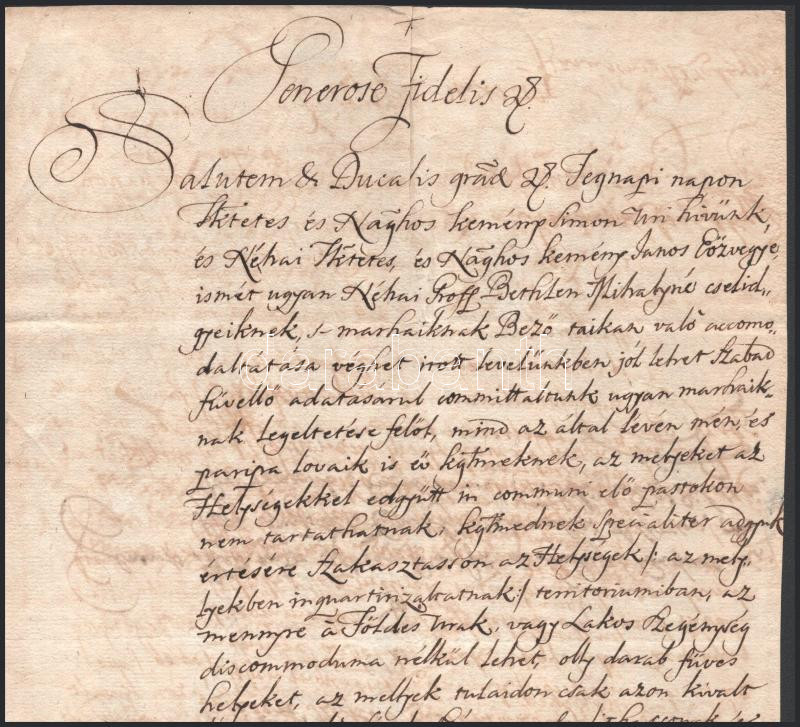 Generose Fidelis &.
Salutem & Ducalis grãd &. Tegnapi napon
Tktetes és Naghos kemény Simon Uri hivünk,
és Néhai Tktetes, és Naghos kemény Janos Eözvegye,
ismét ugyan Néhai Groff Bethlen Mihalyné cselid„
gyeiknek, s marháiknak Bezö taikan való accomo„
daltatása véghet irott levelünkben jól lehet szabad
füvellő adatásárul committaltunk ugyan marhaik„
nak legeltetése felöl, mind az által lévén mén, és
paripa lovaik is eö kglmeknek, az melyeket az
Helységekkel edgyütt in communi elö pastokon
nem tartathatnak, kglmednek specialiter adgyuk
értésére szakasztasson az Helységek /: az mely„
lyekben inquartirizaltatnak :/ territoriumiban, az
mennyre à Földes Urak, vagy Lakos Szegénység
discommoduma nélkül lehet, olly darab füves
helyeket, az mellyek tulaidon csak azon kivált